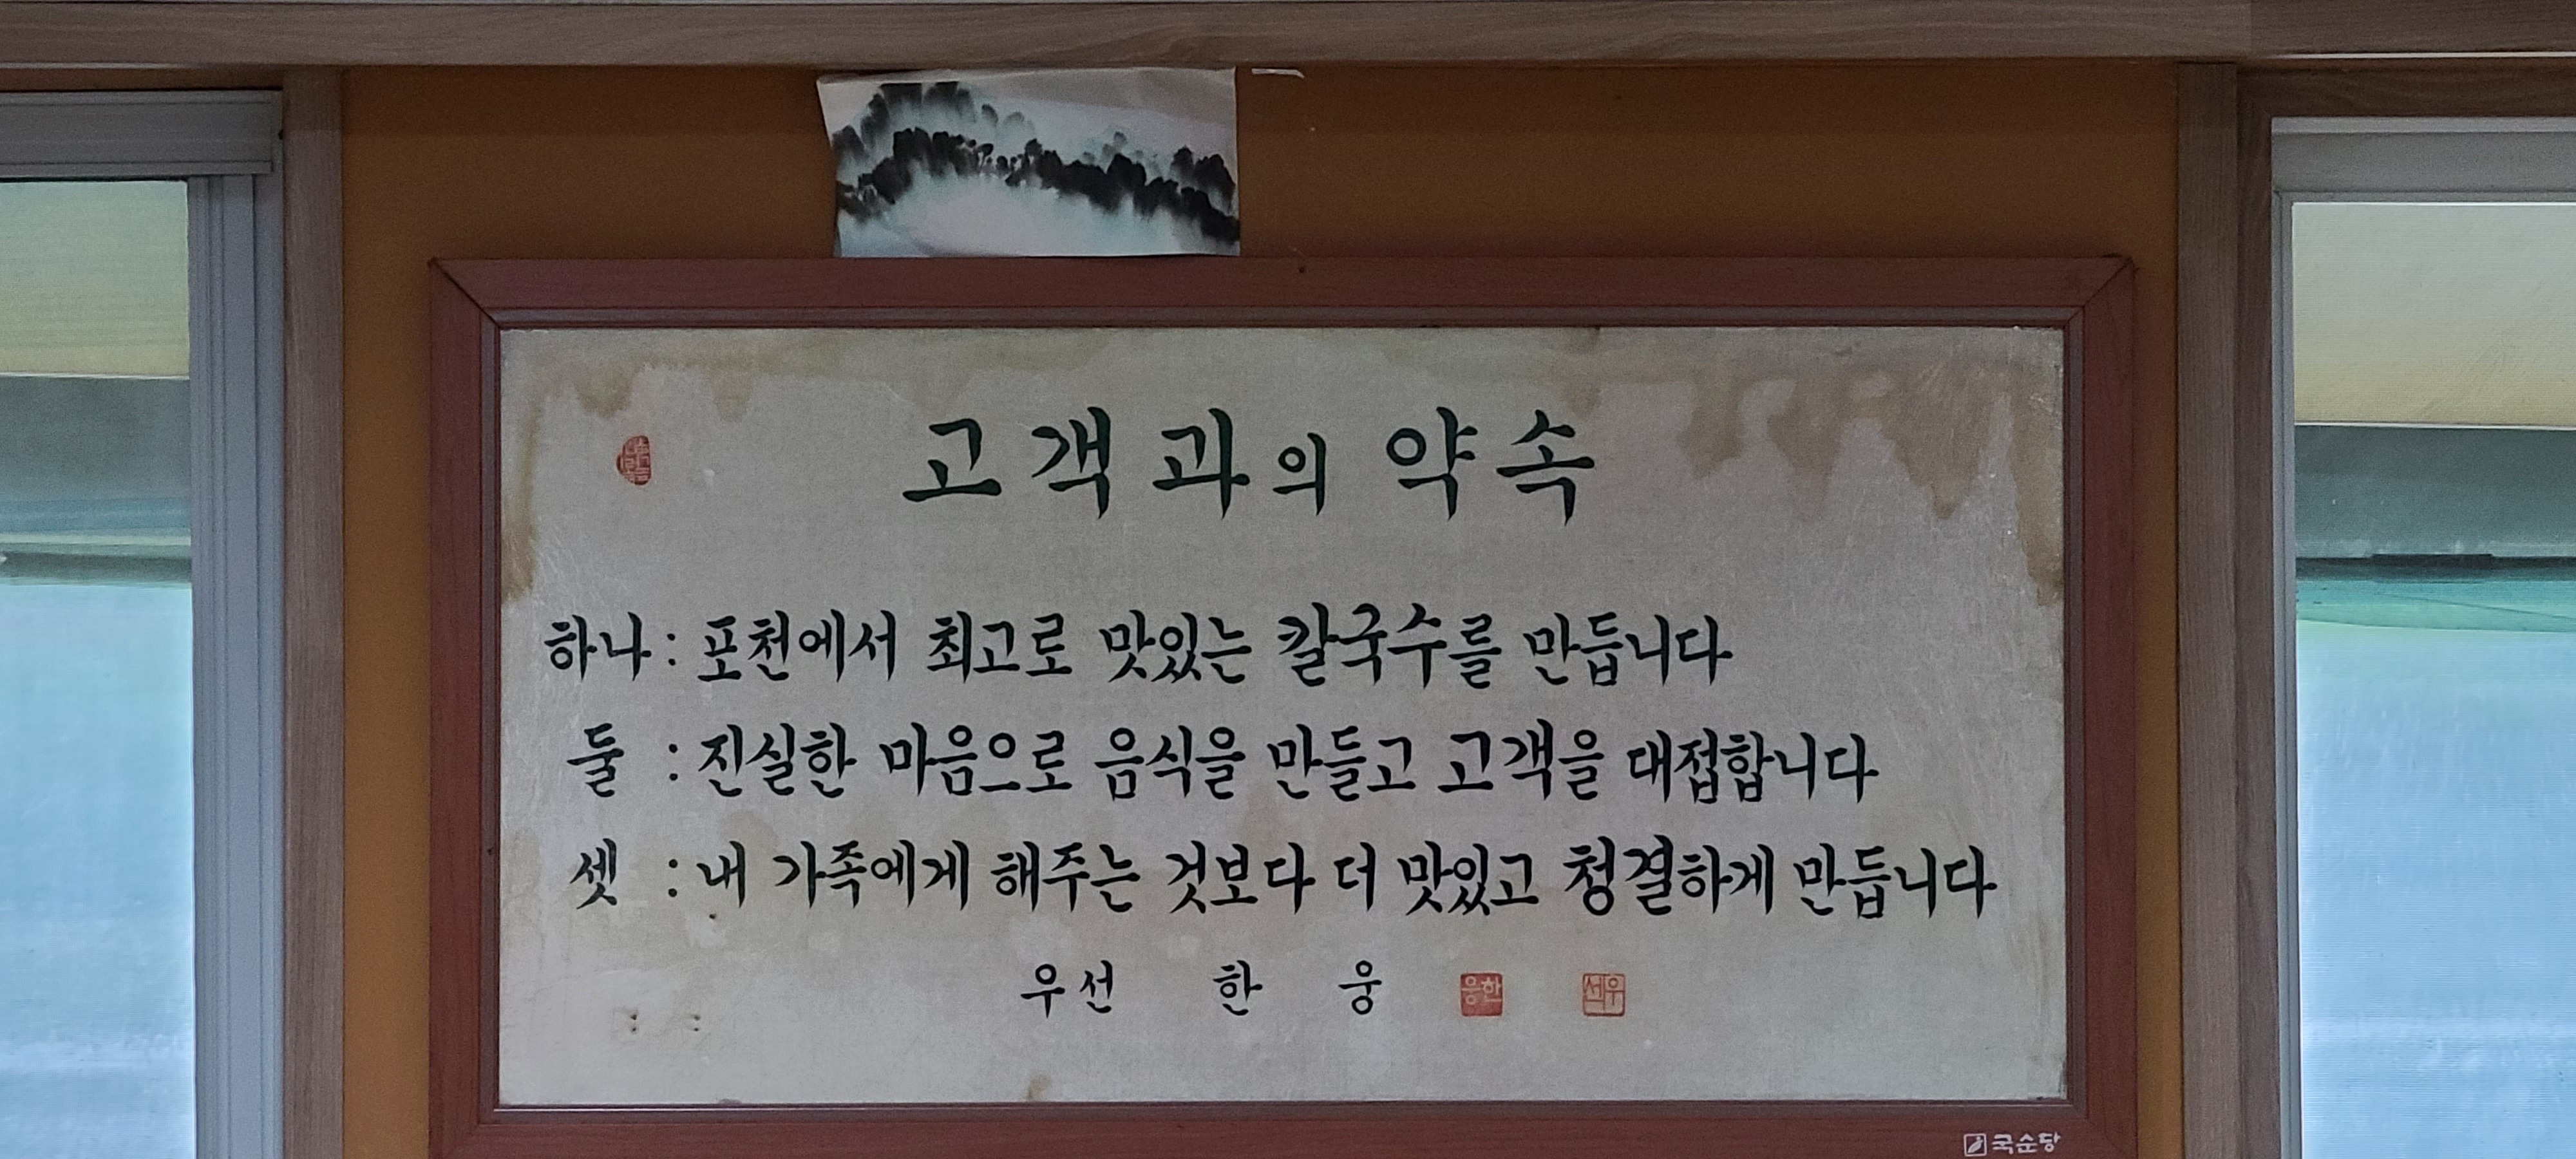 고객과의 약속
하나 : 포천에서 최고로 맛있는 칼국수를 만듭니다
둘 : 진실한 마음으로 음식을 만들고 고객을 대접합니다
셋 : 내 가족에게 해주는 것보다 더 맛있고 청결하게 만듭니다
우선 한 웅
국순당